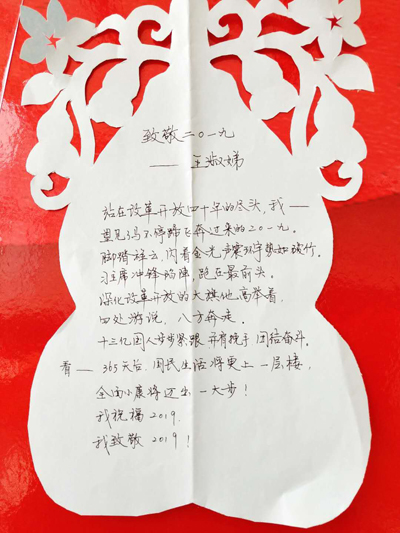 致敬二0一九
—— 王淑娣
站在改革开放四十年的尽头,我——
望见马不停蹄飞奔过来的20一九。
脚踏祥云,闪着金光,声震环宇势如破竹。
习主席冲锋陷阵,跑在最前头。
深化改革开放的大旗他高举着,
四处游说,八方奔走。
十三亿国人步步紧跟 并肩携手 团结奋斗。
看— 365天后,国民生活将更上一层楼,
全面小康将迈出一大步!
我祝福2019,
我致敬2019!